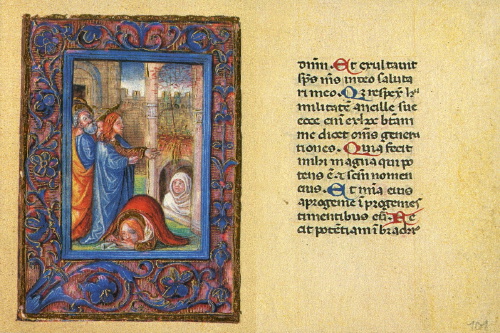 dñm. Et exultauit
sp̃s m̃s in deo saluta
ri meo. Q̃ respex̃ hu
militatẽ ancille sue
ecce eñi ex hoc btãm
me dicẽt om̃s genera
tiones. Quia fecit
mihi magna qui po
tens ẽ et sc̃m nomen
eius. Et mĩa eius
a progenie ĩ progenies
timentibus eũ. Fe
cit potẽtiam ĩ brachio